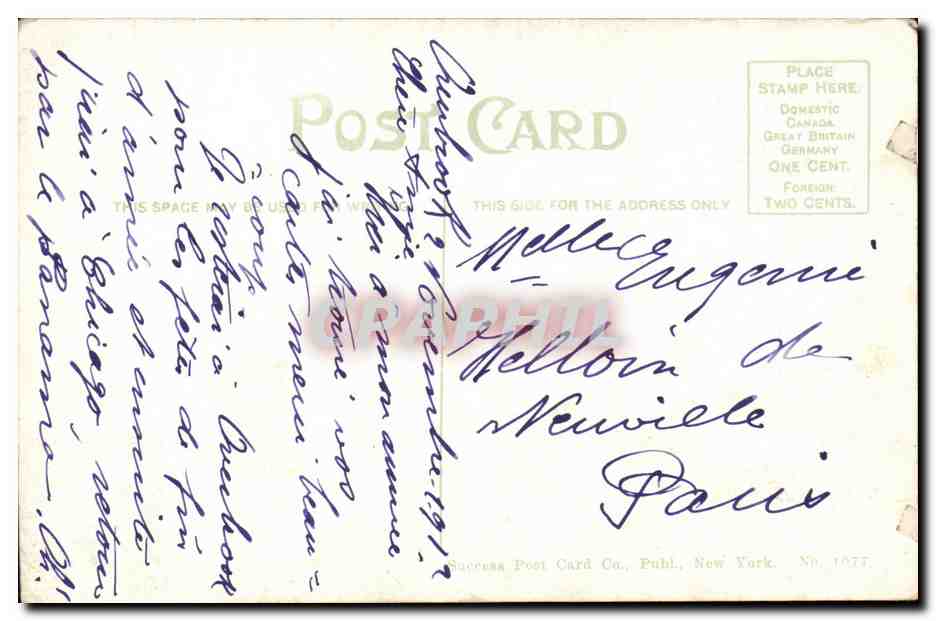 POST CARD
THIS SPACE MAY BE USED FOR WRITING
THIS SIDE FOR THE ADDRESS ONLY
PLACE
STAMP HERE
DOMESTIC
CANADA
GREAT BRITAIN
GERMANY
ONE CENT.
FOREIGN
TWO CENTS.
2 Novembre 1912
Chère
à mon arrivée
j'ai trouvé vos
cartes merci beau=
=coup.
Je resterai à Overbrook
pour les fêtes de fin
d'année et ensuite
j'irai à Chicago, retour
par le Panama. Ch.
Melle Eugenie
Melloin de
Neuville
Paris
GRAPHIL
Success Post Card Co., Publ., New York. No. 1077